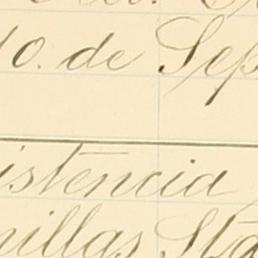 10. de Sep
istencia
nillas Sta